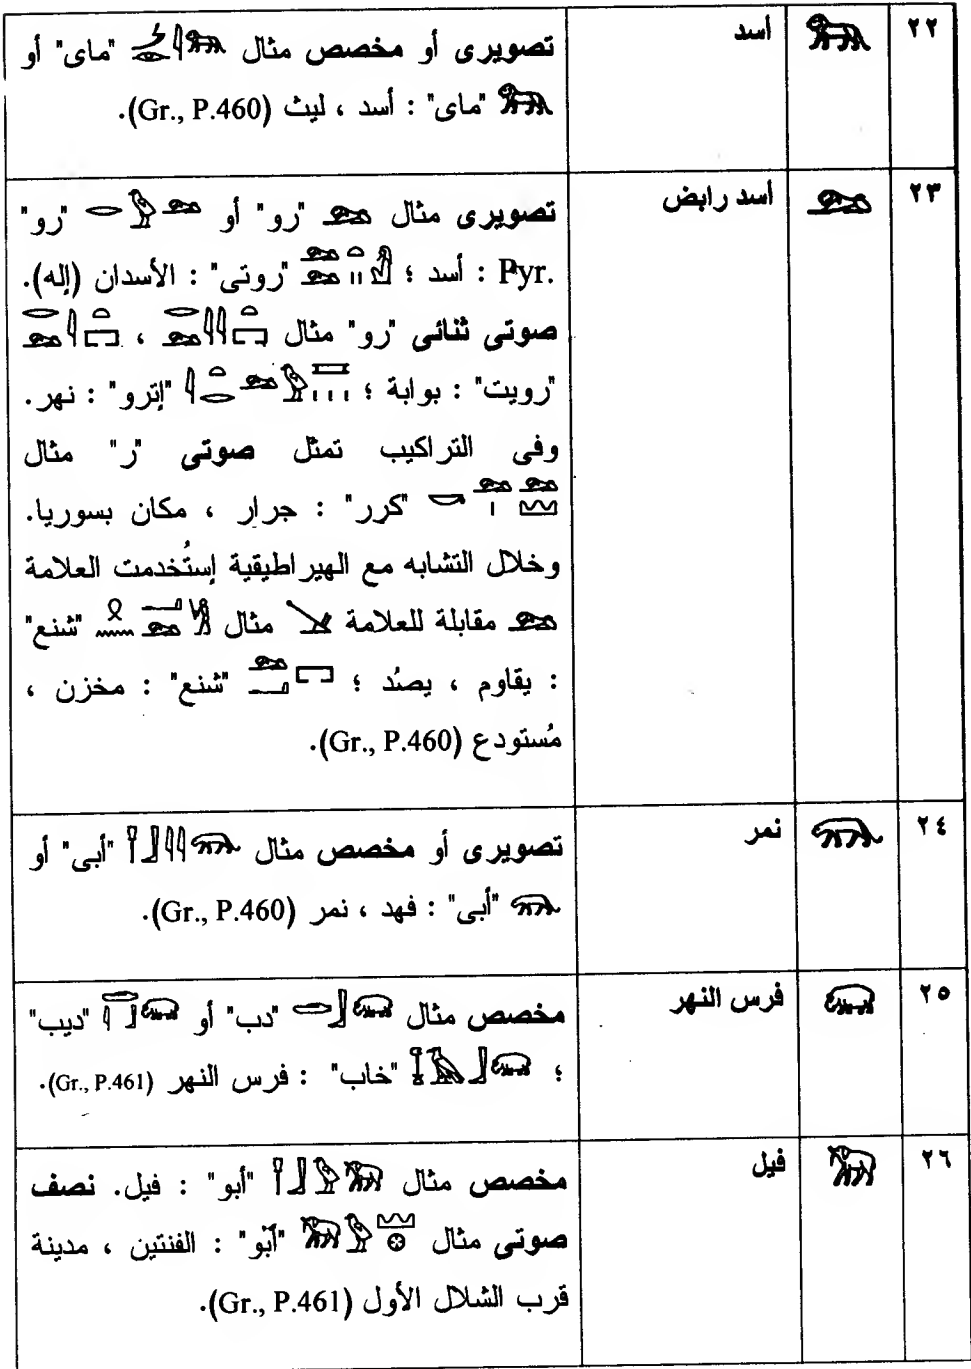 ٢٢ 𓃬 أسد تصويرى أو مخصص مثال 𓌳𓁹𓇋𓃬 "ماى" أو
𓃬 "ماى" : أسد ، ليث (Gr., P.460).
٢٣ 𓃭 أسد رابض تصويرى مثال 𓃭 "رو" أو 𓂋𓅱𓃭 "رو"
Pyr. : أسد ؛ "روتى" : الأسدان (إله).
صوتى ثنائى "رو" مثال ،
"رويت" : بوابة ؛ "إترو" : نهر.
وفى التراكيب تمثل صوتى "ر" مثال
"كرر" : جرار ، مكان بسوريا.
وخلال التشابه مع الهيراطيقية إستُخدمت العلامة
𓃭 مقابلة للعلامة مثال "شنع"
: يقاوم ، يصُد ؛ "شنع" : مخزن ،
مُستودع (Gr., P.460).
٢٤ 𓃮 نمر تصويرى أو مخصص مثال 𓋴𓃀𓇋𓇋𓃮 "أبى" أو
𓃮 "أبى" : فهد ، نمر (Gr., P.460).
٢٥ 𓃯 فرس النهر مخصص مثال 𓂧𓃀𓃯 "دب" أو "ديب"
؛ "خاب" : فرس النهر (Gr., P.461).
٢٦ 𓃰 فيل مخصص مثال 𓃀𓅱𓃰 "أبو" : فيل. نصف
صوتى مثال 𓃰𓅱𓈊𓊖 "آبو" : الفنتين ، مدينة
قرب الشلال الأول (Gr., P.461).